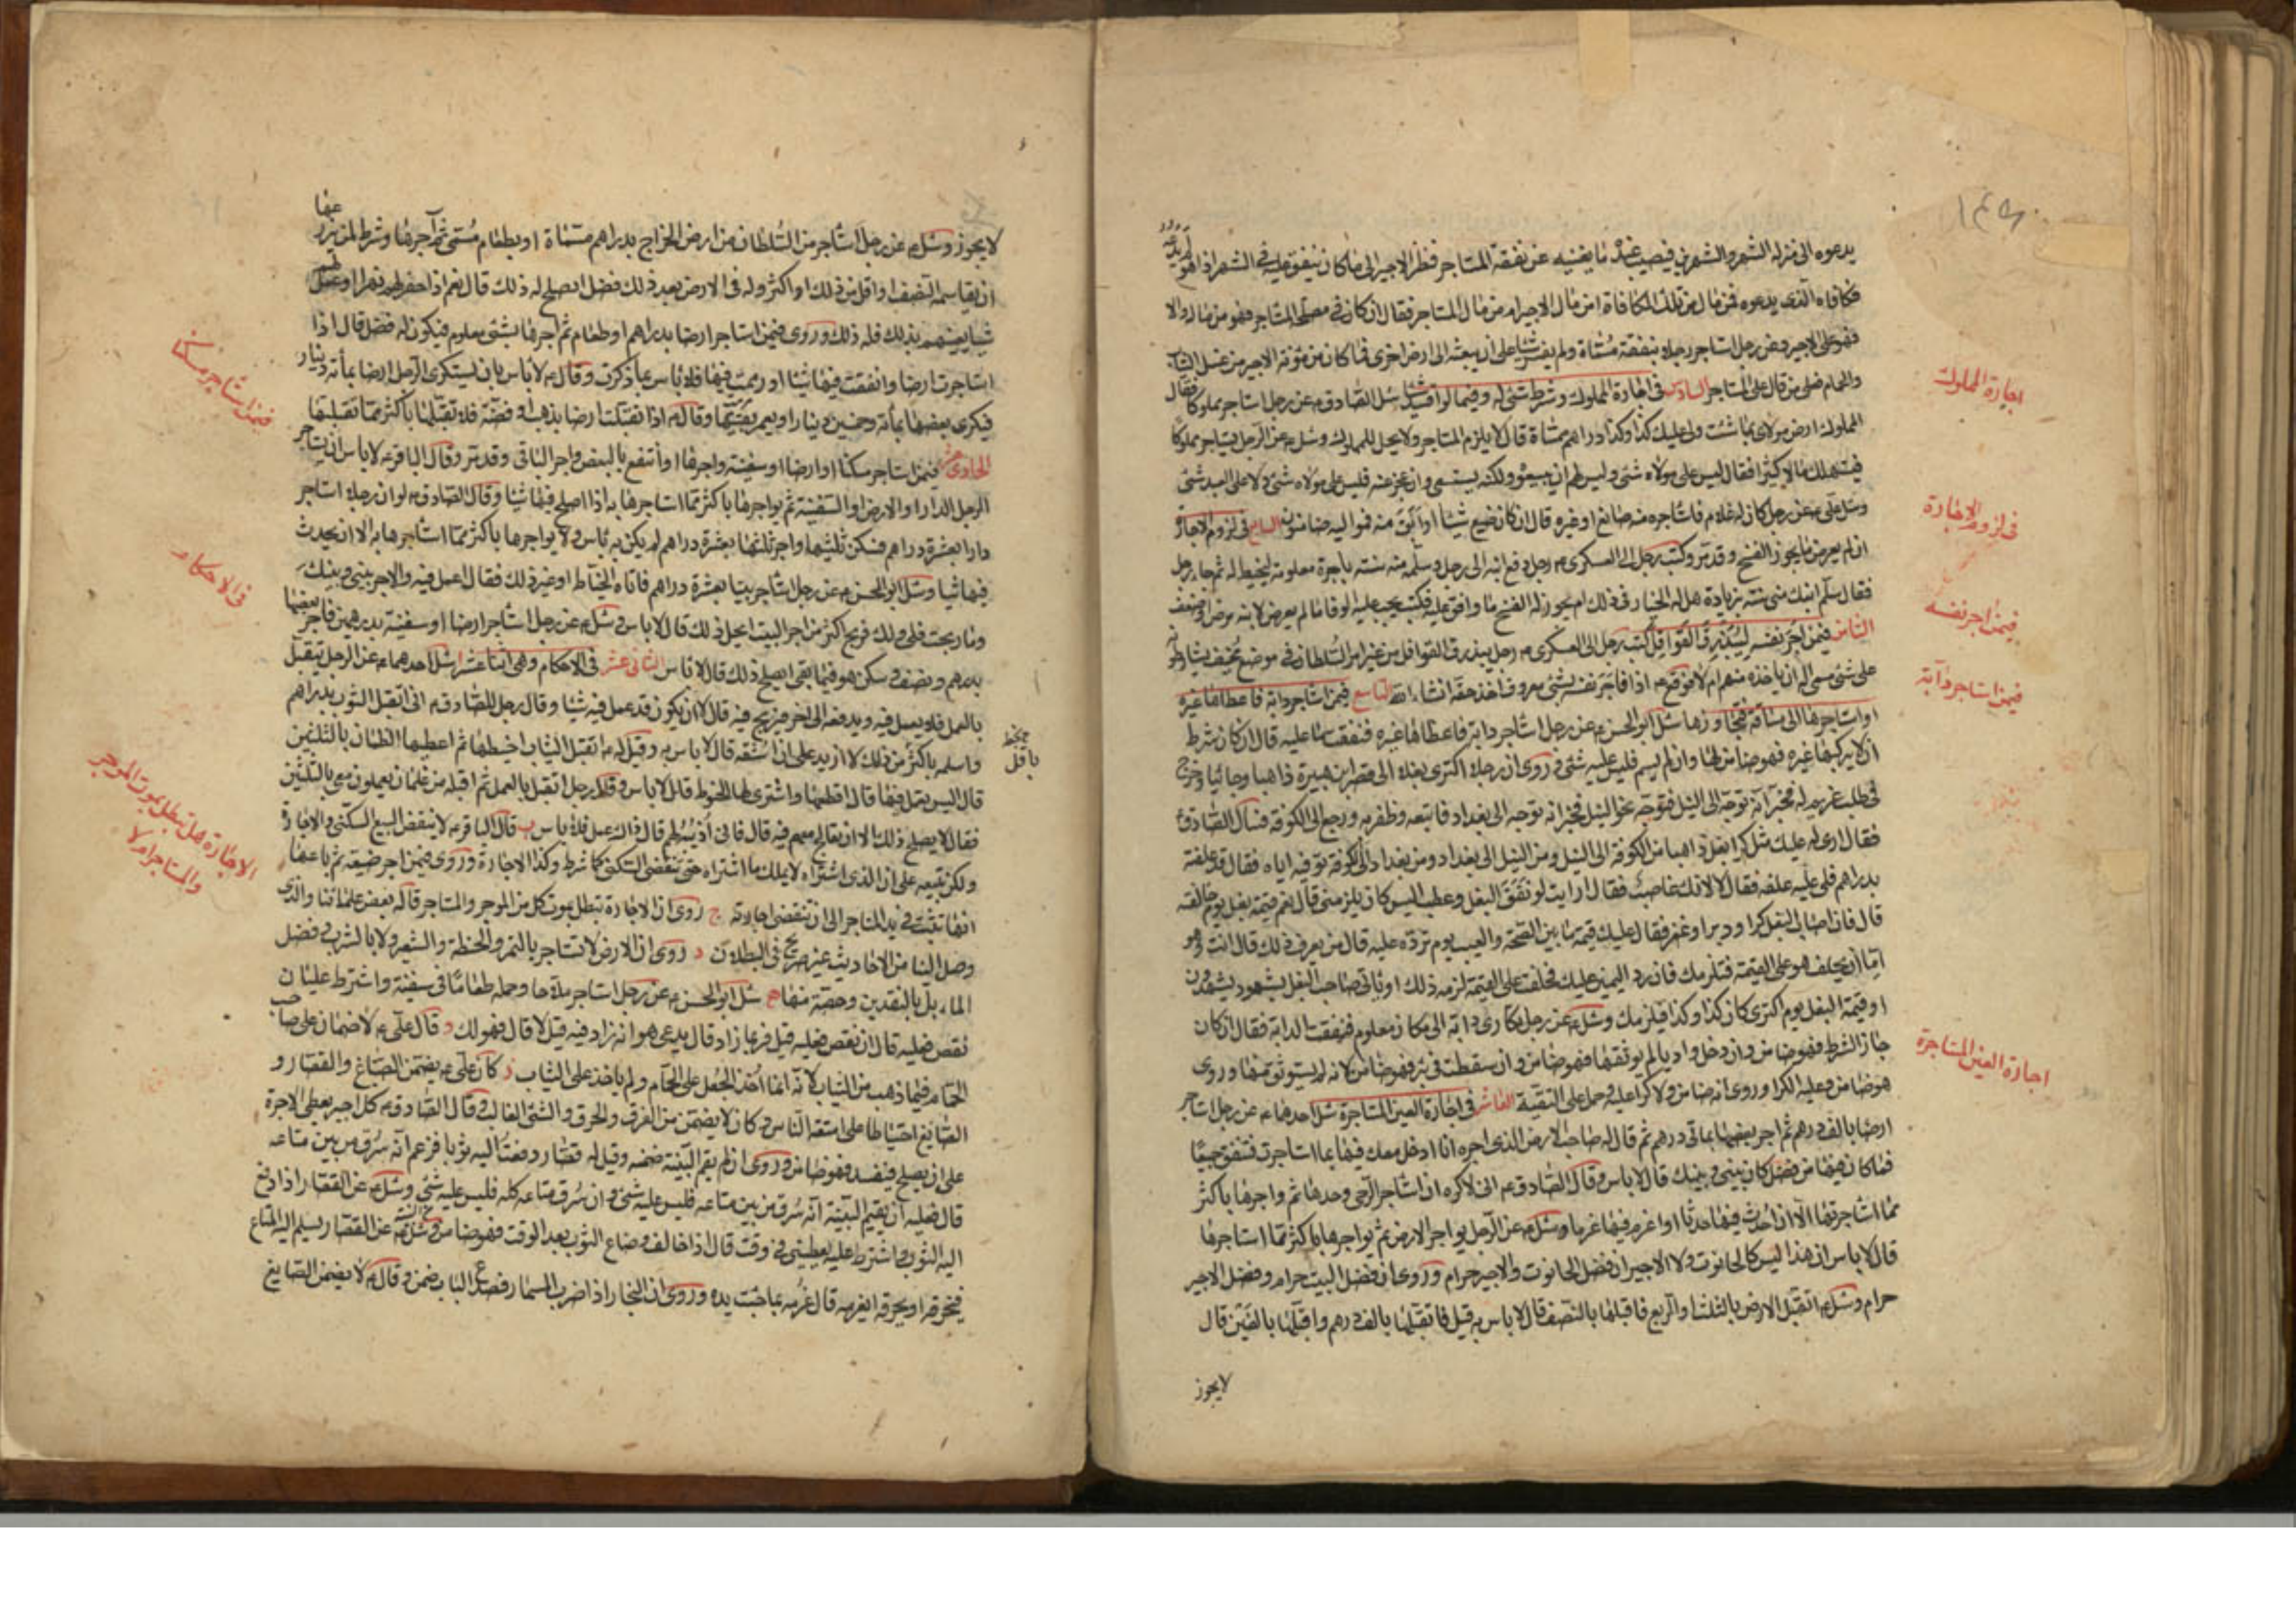 يدعوه الى منزله الشهر والشهرين فيصيب عنده ما يغنيه عن نفقة المستاجر فنظر الاجير الى ما كان ينفق عليه في الشهر اذا هو لم يدعه
فكافاه الذى يدعوه فمن مال من تلك المكافاة امن مال الاجير ام من مال المستاجر فقال ان كان في مصلحة المستاجر فهو من ماله والا
فهو على الاجير وعن رجل استاجر رجلا بنفقة مسماة ولم يفسر شيئا على ان يبعثه الى ارض اخرى فما كان من مؤنة الاجير من غسل الثياب
والحمام فعلى من قال على المستاجر السادس في اجارة المملوك وشرط شئ له وفيما لو افسد شيئا سئل الصادق ع عن رجل استاجر مملوكا فقال
المملوك ارض مولاى بما شئت ولى عليك كذا وكذا دراهم مسماة قال لا يلزم المستاجر ولا يحل للمملوك وسئل ع عن الرجل يستاجر مملوكا
فيستهلك مالا كثيرا فقال ليس على مولاه شئ وليس لهم ان يبيعوه ولكنه يستسعى وان عجز عنه فليس على مولاه شئ ولا على العبد شئ
وسئل على ع عن رجل كان له غلام فاستاجره منه صانع او غيره قال ان كان ضيع شيئا او ابق منه فمواليه ضامنون السابع في لزوم الاجارة
ان لم يعرض ما يجوز الفسخ وقد مر وكتب رجل الى العسكرى ع رجل دفع ابنه الى رجل وسلمه منه سنة باجرة معلومة ليخيط له ثم جاء رجل
فقال سلم ابنك منى سنة بزيادة هل له الخيار في ذلك ام يجوز له الفسخ ما وافق عليه فكتب يجب عليه الوفا ما لم يعرض لابنه مرض او ضعف
الثامن فيمن اجر نفسه ليبذرق القوافل كتب رجل الى العسكرى ع رجل يبذرق القوافل من غير امر السلطان في موضع مخيف يشارطونه
على شئ مسمى اله ان ياخذه منهم ام لا فوقع ع اذا فاجر نفسه بشئ معروف اخذ حقه انشاء الله التاسع فيمن استاجر دابة فاعطاها غيره
او استاجرها الى مسافة فتجاوزها سئل ابو الحسن ع عن رجل استاجر دابة فاعطاها غيره فنفقت ما عليه قال ان كان شرط
ان لا يركبها غيره فهو ضامن لها وان لم يسم فليس عليه شئ وروى ان رجلا اكترى بغلا الى قصر ابن هبيرة ذاهبا وجائيا وخرج
في طلب غريم له فخبر انه توجه الى النيل فتوجه نحو النيل فخبر انه توجه الى بغداد فاتبعه وظفر به ورجع الى الكوفة فسال الصادق ع
فقال ارى له عليك مثل كرا بغل ذاهبا من الكوفة الى النيل ومن النيل الى بغداد ومن بغداد الى الكوفة توفيه اياه فقال قد علفته
بدراهم فلى عليه علفه فقال لا لانك غاصب فقال ارايت لو نفق البغل وعطب اليس كان يلزمنى قال نعم قيمة بغل يوم خالفته
قال فان اصاب البغل كسر او دبر او غمز فقال عليك قيمة ما بين الصحة والعيب يوم ترده عليه قال من يعرف ذلك قال انت وهو
اما ان يحلف هو على القيمة فتلزمك فان رد اليمين عليك فحلفت على القيمة لزمه ذلك او ياتى صاحب البغل بشهود يشهدون
ان قيمة البغل يوم اكترى كان كذا وكذا فيلزمك وسئل ع عن رجل تكارى دابة الى مكان معلوم فنفقت الدابة فقال ان كان
جاز الشرط فهو ضامن وان دخل واديا لم يوثقها فهو ضامن وان سقطت في بئر فهو ضامن لانه لم يستوثق منها وروى
هو ضامن وعليه الكرا وروى انه ضامن ولا كرا عليه وحمل على التقية العاشر في اجارة العين المستاجرة سئل احدهما ع عن رجل استاجر
ارضا بالف درهم ثم اجر بعضها بمائتى درهم ثم قال له صاحب الارض الذى اجره انا ادخل معك فيها بما استاجرت فننفق جميعا
فما كان فيها من فضل كان بينى وبينك قال لا باس وقال الصادق ع انى لاكره ان استاجر الرحى وحدها ثم اواجرها باكثر
مما استاجرتها الا ان احدث فيها حدثا او اغرم فيها غرما وسئل ع عن الرجل يواجر الارض ثم يواجرها باكثر مما استاجرها
قال لا باس ان هذا ليس كالحانوت ولا الاجير ان فضل الحانوت والاجير حرام وروى ان فضل البيت حرام وفضل الاجير
حرام وسئل ع اتقبل الارض بالثلث او الربع فاقبلها بالنصف قال لا باس به قيل فاتقبلها بالف درهم واقبلها بالفين قال
لا يجوز
اجارة المملوك
في لزوم الاجارة
فيمن اجر نفسه
فيمن استاجر دابة
اجارة العين المستاجرة
لا يجوز وسئل ع عن رجل استاجر من السلطان من ارض الخراج بدراهم مسماة او بطعام مسمى ثم آجرها وشرط لمن يزرعها
ان يقاسمه النصف او اقل من ذلك او اكثر وله في الارض بعد ذلك فضل ايصلح له ذلك قال نعم اذا حفر لهم نهرا او عمل لهم
شيا يعينهم بذلك فله ذلك وروى فيمن استاجر ارضا بدراهم او طعام ثم اجرها بشئ معلوم فيكون له فضل قال اذا
استاجرت ارضا وانفقت فيها شيئا او رممت فيها فلا باس بما ذكرت وقال ع لا باس بان يستكرى الرجل ارضا بمأئة دينار
فيكرى بعضها بمأئة وخمسين دينارا ويعمر بقيتها وقال ع اذا تقبلت ارضا بذهب او فضة فلا تقبلها باكثر مما تقبلتها
الحادى عشر فيمن استاجر مسكنا او ارضا او سفينة واجرها او انتفع بالبعض واجر الباقى وقد مر وقال الباقر ع لا باس ان يستاجر
الرجل الدار او الارض او السفينة ثم يواجرها باكثر مما استاجرها به اذا اصلح فيها شيئا وقال الصادق ع لو ان رجلا استاجر
دارا بعشرة دراهم فسكن ثلثيها واجر ثلثها بعشرة دراهم لم يكن به باس ولا يواجرها باكثر مما استاجرها به الا ان يحدث
فيها شيئا وسئل ابو الحسن ع عن رجل استاجر بيتا بعشرة دراهم فاتاه الخياط او غير ذلك فقال اعمل فيه والاجر بينى وبينك
وما ربحت فلى ولك فربح اكثر من اجر البيت ايحل ذلك قال لا باس وسئل ع عن رجل استاجر ارضا او سفينة بدرهمين فاجر بعضها
بدرهم ونصف وسكن هو فيما بقى ايصلح ذلك قال لا باس الثانى عشر في الاحكام وهى اثنا عشر ا سئل احدهما ع عن الرجل يتقبل
بالعمل فلا يعمل فيه ويدفعه الى اخر فيربح فيه قال لا الا ان يكون قد عمل فيه شيئا وقال رجل للصادق ع انى اتقبل الثوب بدراهم
واسلمه باكثر من ذلك لا ازيد على ان اشقه قال لا باس به وقيل له ع اتقبل الثياب اخيطها ثم اعطيها الغلمان بالثلثين
قال اليس يعمل فيها قال اقطعها واشترى لها الخيوط قال لا باس وقال رجل اتقبل بالعمل ثم اقبله من غلمان يعملون معى بالثلثين
فقال لا يصلح ذلك الا ان تعالج معهم فيه قال فانى اذيبه لهم قال ذاك عمل فلا باس ب قال الباقر ع لا ينقض البيع السكنى والاجارة
ولكن تبيعه على ان الذى اشتراه لا يملك ما اشتراه حتى تنقضى السكنى كما شرط وكذا الاجارة وروى فيمن اجر ضيعة ثم باعها
انها تثبت في يد المستاجر الى ان تنقضى اجارته ج روى ان الاجارة تبطل بموت كل من الموجر والمستاجر قاله بعض علمائنا والذى
وصل الينا من الاحاديث غير صريح في البطلان د روى ان الارض لا تستاجر بالتمر والحنطة والشعير ولا بالشرب وفضل
الماء بل بالنقدين وحصة منها ه سئل ابو الحسن ع عن رجل استاجر ملاحا وحمله طعاما في سفينة واشترط عليه ان
نقص فعليه قال ان نقص فعليه قيل فربما زاد قال يدعى هو انه زاد فيه قيل لا قال فهو لك و قال على ع لا ضمان على صاحب
الحمام فيما ذهب من الثياب لانه انما اخذ الجعل على الحمام ولم ياخذ على الثياب ز كان على ع يضمن الصباغ والقصار و
الصايغ احتياطا على امتعة الناس وكان لا يضمن من الغرق والحرق والشئ الغالب وقال الصادق ع كل اجير يعطى الاجرة
على ان يصلح فيفسد فهو ضامن وروى ان لم يقم البينة ضمنه وقيل له قصار دفعت اليه ثوبا فزعم انه سرق من بين متاعه
قال فعليه ان يقيم البينة انه سرق من بين متاعه فليس عليه شئ وان سرق متاعه كله فليس عليه شئ وسئل ع عن القصار اذا دفع
اليه الثوب واشترط عليه يعطينى في وقت قال اذا خالف وضاع الثوب بعد الوقت فهو ضامن وسئل ع عن القصار يسلم اليه المتاع
فيخرقه او يحرقه ايغرمه قال غرمه بما جنت يده وروى ان النجار اذا ضرب المسمار فصدع الباب ضمن وقال ع لا يضمن الصايغ
فيمن استاجر مسكنا
في الاحكام
الاجارة هل تبطل بموت الموجر
والمستاجر ام لا